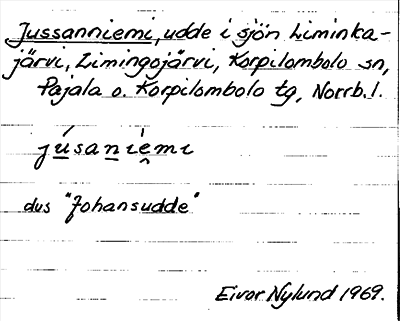 Jussanniemi, udde i sjön Liminka-
järvi, Limingojärvi, Korpilombolo sn,
Pajala o. Korpilombolo tg, Norrb. l.
júsaniémi
dvs "Johansudde"
Eivor Nylund 1969.